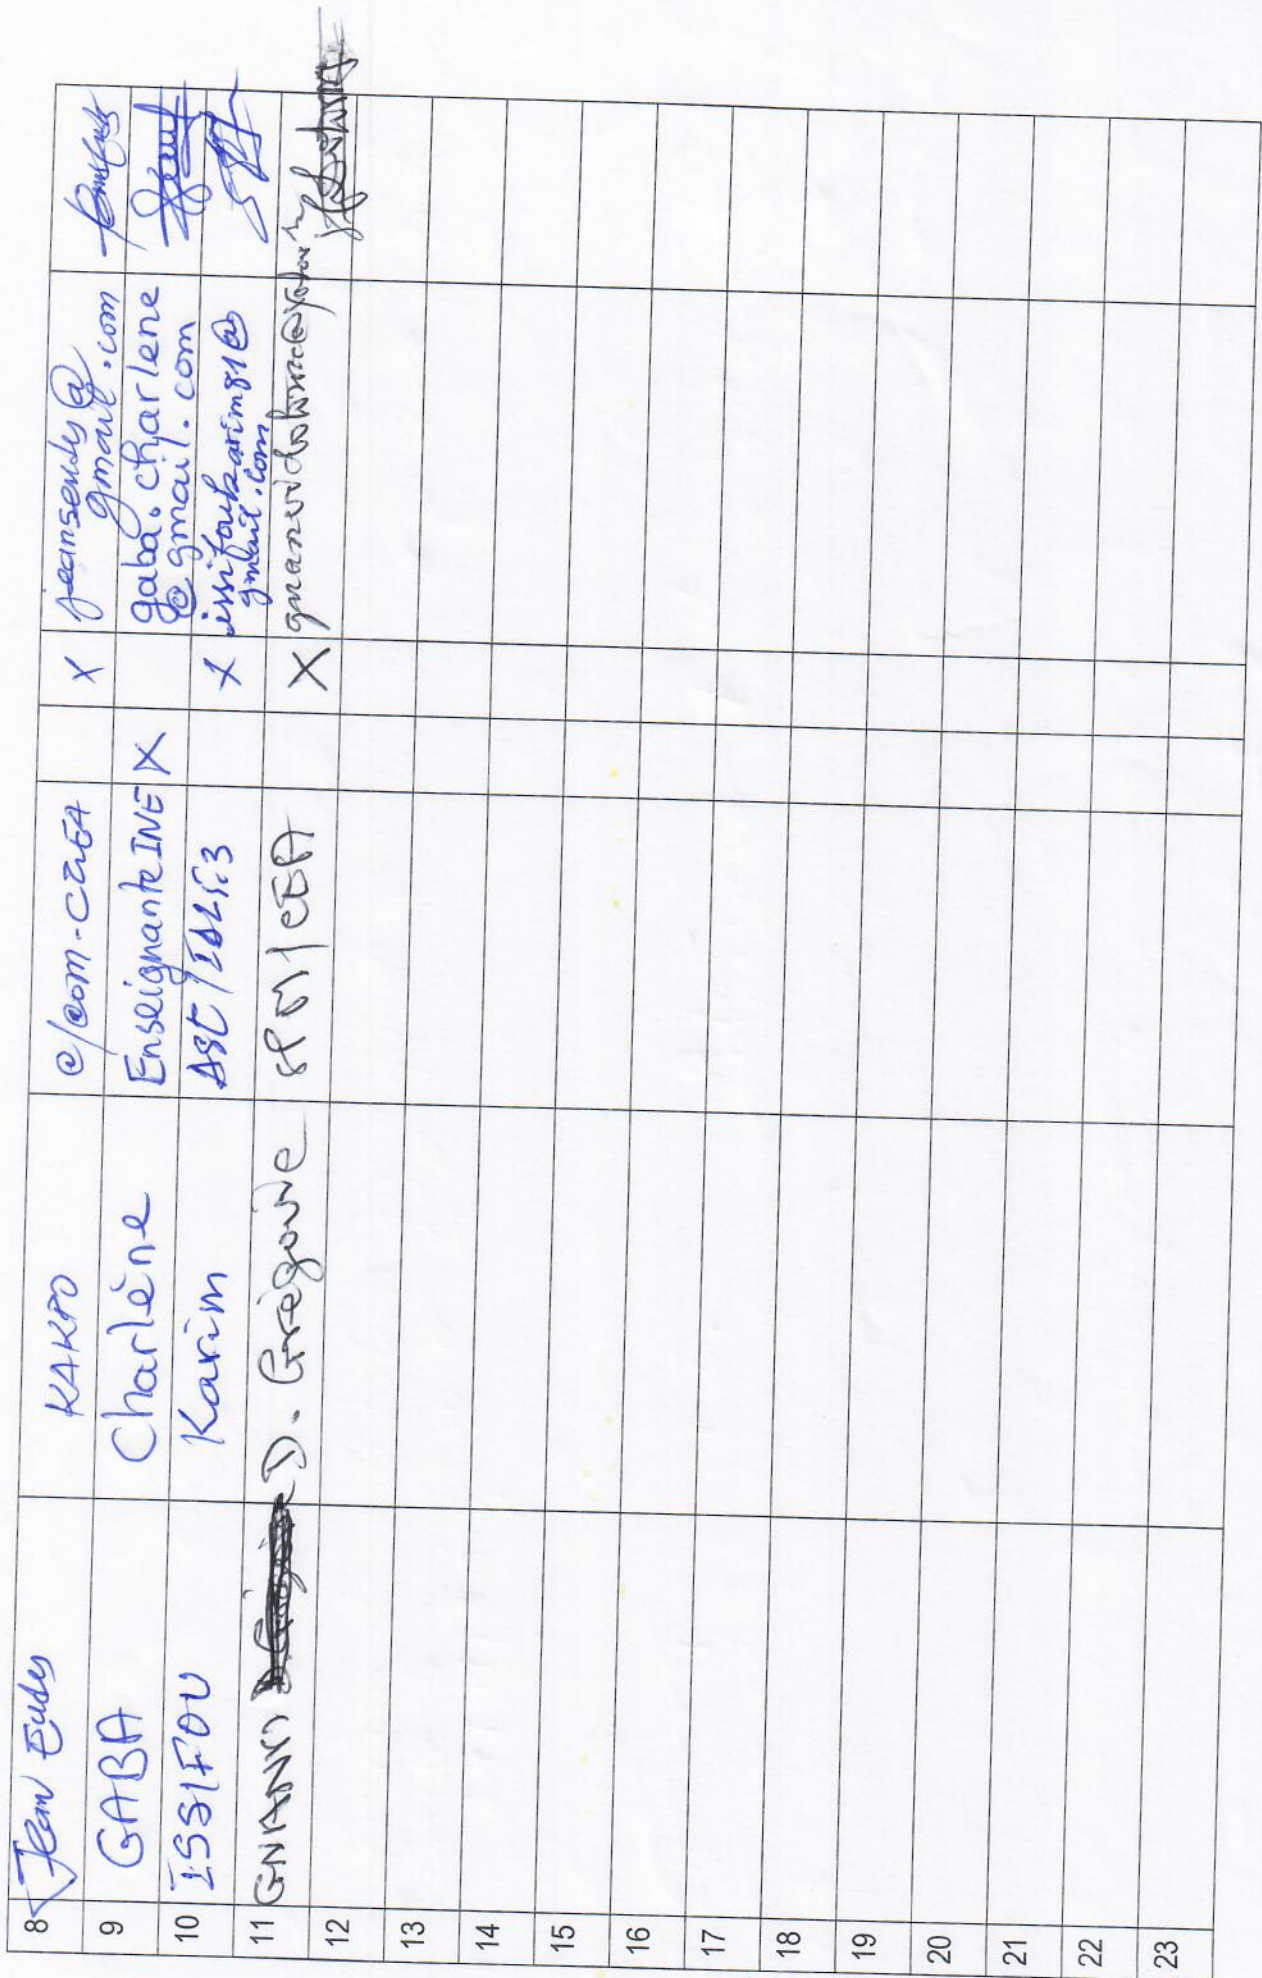 8 Jean Eudes KAKPO X jeanseudes@
gmail.com
9 GABA Charlène Enseignante INE X gaba.charlene
@gmail.com
10 ISSIFOU Karim X issifoukarim81@
gmail.com
11 D. Grégoire SPM/CEA X
12
13
14
15
16
17
18
19
20
21
22
23